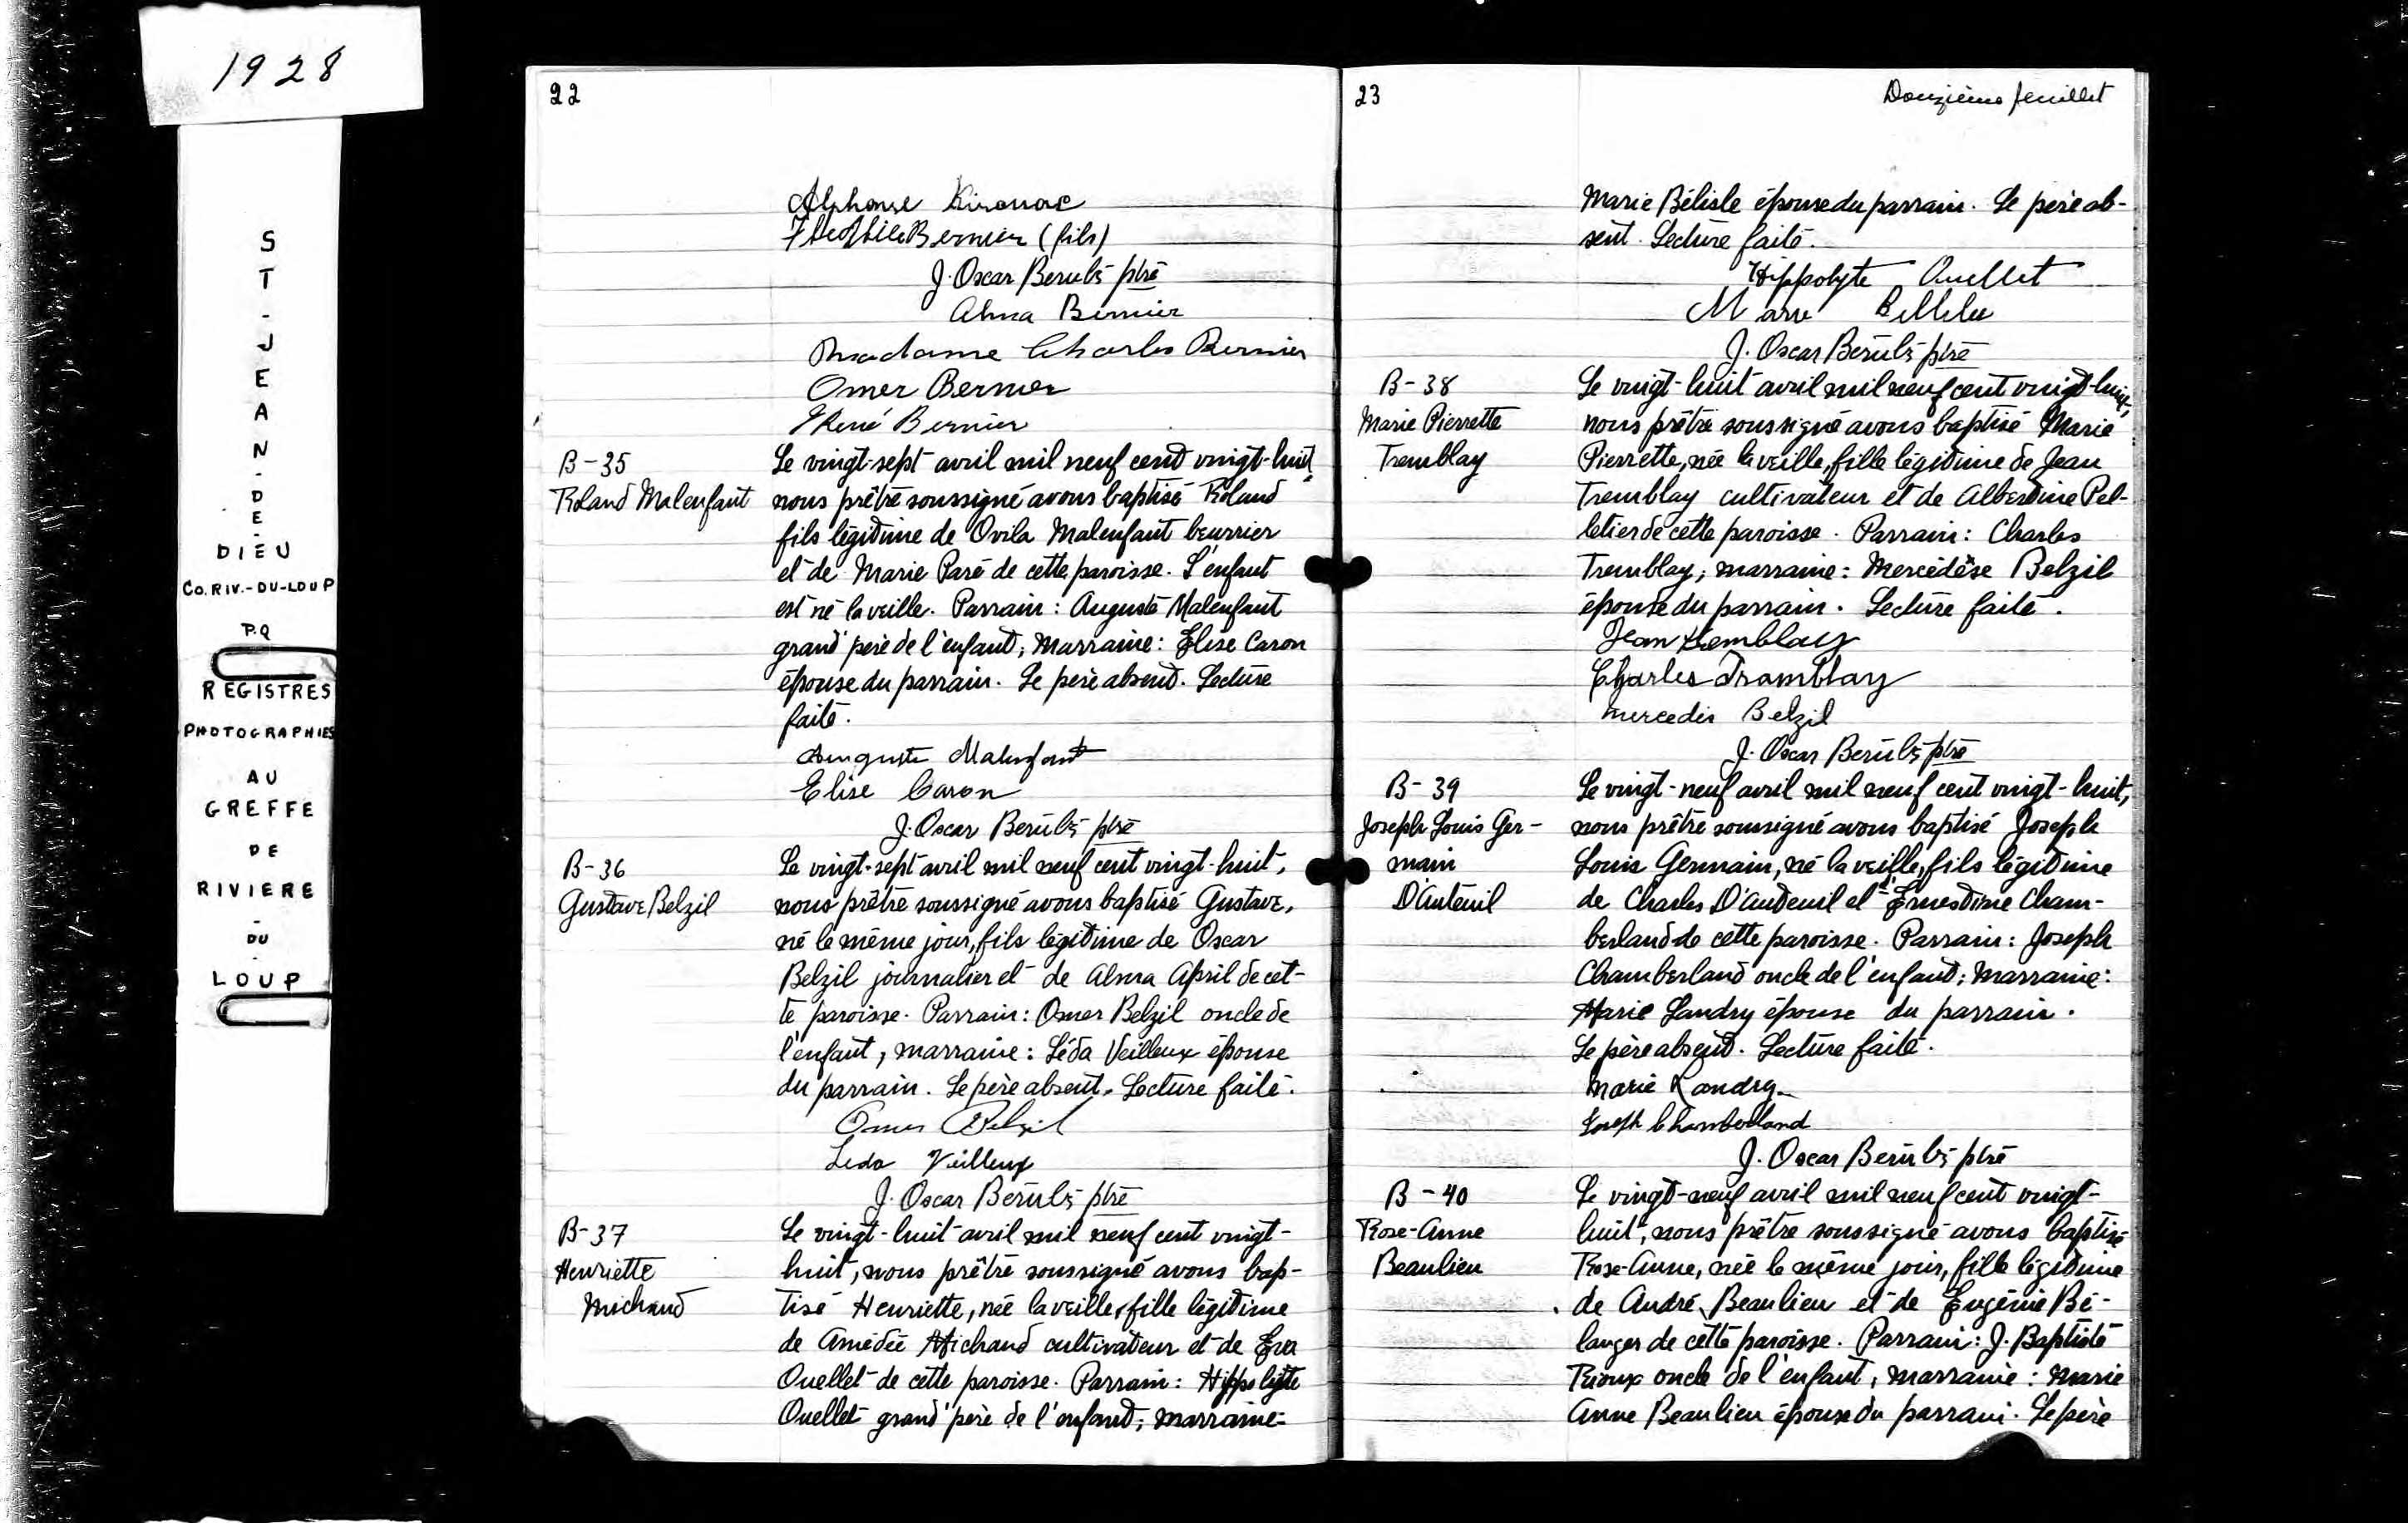 1928
S
T
-
J
E
A
N
-
D
E
-
DIEU
CO. RIV.-DU-LOUP
P.Q
REGISTRES
PHOTOGRAPHIES
AU
GREFFE
DE
RIVIERE
-
DU
-
LOUP
22
Alphonse
Bernier (fils)
J. Oscar Bérubé ptre
Alma Bernier
Madame Charles Bernier
Omer Bernier
René Bernier
B-35
Roland Malenfant
Le vingt-sept avril mil neuf cent vingt-huit,
nous prêtre soussigné avons baptisé Roland
fils légitime de Ovila Malenfant beurrier
et de Marie Paré de cette paroisse. L'enfant
est né la veille. Parrain: Auguste Malenfant
grand'père de l'enfant; Marraine: Elise Caron
épouse du parrain. Le père absent. Lecture
faite.
Auguste Malenfant
Elise Caron
J. Oscar Bérubé ptre
B-36
Gustave Belzil
Le vingt-sept avril mil neuf cent vingt-huit,
nous prêtre soussigné avons baptisé Gustave,
né le même jour, fils légitime de Oscar
Belzil journalier et de Alma April de cet-
te paroisse. Parrain: Omer Belzil oncle de
l'enfant, marraine: Léda Veilleux épouse
du parrain. Le père absent. Lecture faite.
Omer Belzil
Leda Veilleux
J. Oscar Bérubé ptre
B-37
Henriette
Michaud
Le vingt-huit avril mil neuf cent vingt-
huit, nous prêtre soussigné avons bap-
tisé Henriette, née la veille, fille légitime
de Amédée Michaud cultivateur et de Eva
Ouellet de cette paroisse. Parrain: Hippolyte
Ouellet grand'père de l'enfant; marraine:
23
Douzième feuillet
Marie Bélisle épouse du parrain. Le père ab-
sent. Lecture faite.
Hippolyte Ouellet
Marie
J. Oscar Bérubé ptre
B-38
Marie Pierrette
Tremblay
Le vingt-huit avril mil neuf cent vingt-huit,
nous prêtre soussigné avons baptisé Marie
Pierrette, née la veille, fille légitime de Jean
Tremblay cultivateur et de Albertine Pel-
letier de cette paroisse. Parrain: Charles
Tremblay; marraine: Mercédèse Belzil
épouse du parrain. Lecture faite.
Jean Tremblay
Charles Tramblay
Mercedes Belzil
J. Oscar Bérubé ptre
B-39
Joseph Louis Ger-
main
D'Auteuil
Le vingt-neuf avril mil neuf cent vingt-huit,
nous prêtre soussigné avons baptisé Joseph
Louis Germain, né la veille, fils légitime
de Charles D'Auteuil et d'Ernestine Cham-
berland de cette paroisse. Parrain: Joseph
Chamberland oncle de l'enfant; Marraine:
Marie Landry épouse du parrain.
Le père absent. Lecture faite.
Marie Landry
Joseph Chamberland
J. Oscar Bérubé ptre
B-40
Rose-Anne
Beaulieu
Le vingt-neuf avril mil neuf cent vingt-
huit, nous prêtre soussigné avons baptisé
Rose-Anne, née le même jour, fille légitime
de André Beaulieu et de Eugénie Bé-
langer de cette paroisse. Parrain: J. Baptiste
Rioux oncle de l'enfant, marraine: Marie
Anne Beaulieu épouse du parrain. Le père